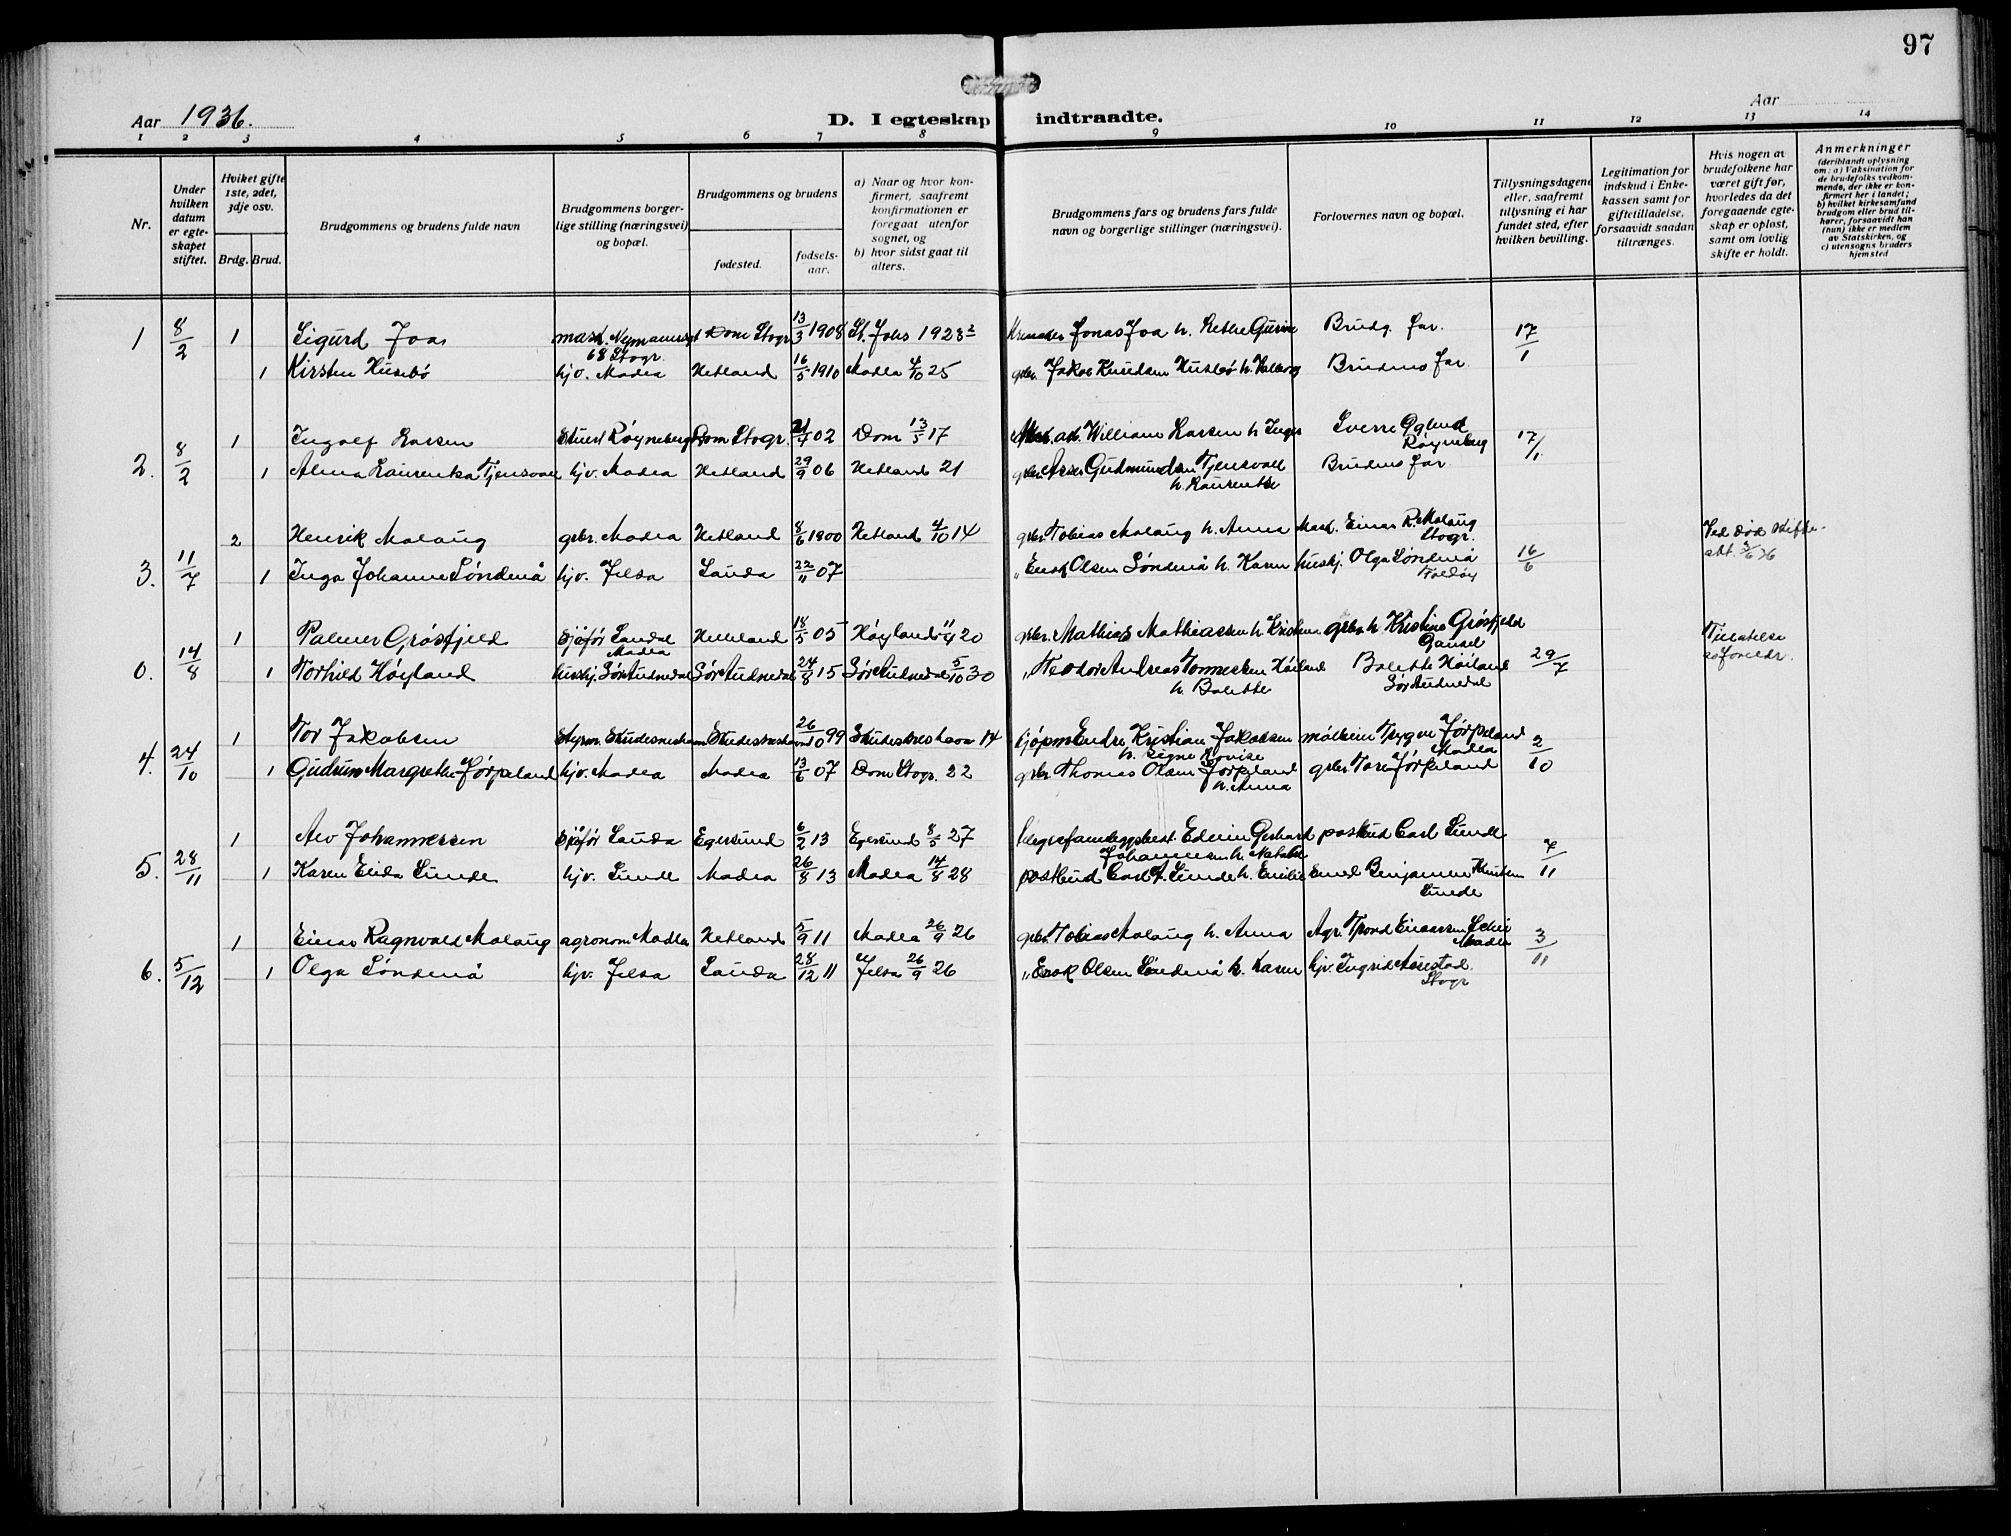 97
Aar 1936.
D. I egteskap indtraadte.
Aar
1 2 3 4 5 6 7 8 9 10 11 12 13 14
Nr.
Under hvilken datum er egteskapet stiftet.
Hvilket gifte 1ste, 2det, 3dje osv.
Brdg. Brud.
Brudgommens og brudens fulde navn
Brudgommens borgerlige stilling (næringsvei) og bopæl.
Brudgommens og brudens
fødested.
fødselsaar.
a) Naar og hvor konfirmert, saafremt konfirmationen er foregaat utenfor sognet, og
b) hvor sidst gaat til alters.
Brudgommens fars og brudens fars fulde navn og borgerlige stillinger (næringsvei).
Forlovernes navn og bopæl.
Tillysningsdagene eller, saafremt tillysning ei har fundet sted, efter hvilken bevilling.
Legitimation for indskud i Enkekassen samt for giftetilladelse, forsaavidt saadan tiltrænges.
Hvis nogen av brudefolkene har været gift før, hvorledes da det foregaaende egteskap er opløst, samt om lovlig skifte er holdt.
Anmerkninger
(deriblandt oplysning om: a) Vaksination for de brudefolks vedkommende, der ikke er konfirmert her i landet; b) hvilket kirkesamfund brudgom eller brud tilhører, forsaavidt han (hun) ikke er medlem av Statskirken, og c) utensogns bruders hjemsted
1 8/2 1 Sigurd Joa 68 Stogr. Dom Stogr 13/3 1908 St. Johs 1923 Jonas Joa h. Gurine Brudg. far. 17/1
1 Kirsten Husebø hjv. Madla Hetland 16/5 1910 Madla 4/10 25 gbr. Jakob Knudsen Husebø h. Brudens far
2. 8/2 1 Ingolf Larsen Røyneberg Dom Stogr. 02 Dom 13/5 17 William Larsen h. Inger Sverre Røyneberg 17/1
1 Alma Laurentza Tjensvoll hjv. Madla Hetland 29/9 06 Hetland 21 Gudmundsen Tjensvoll h. Laurentze Brudens far
3. 11/7 2 Henrik Malaug gbr. Madla Hetland 8/6 1900 Hetland 4/10 14 gbr. Tobias Malaug h. Anna Mask. Einar R. Malaug Stogr. 16/6 Ved död Skifteatt.
1 Inga Johanne Söndenå hjv. Jelsa Sauda 22/11 07 " Olsen Söndenå h. Karen huskj. Olga Söndenå
0. 14/8 1 Palmer Grösfjeld sjåfør Madla Helleland 18/5 05 Høyland 20 gbr. Mathias Mathiassen h. gbr. h. Kristine Grösfjeld Gausel 29/7
1 Torhild Høyland huskj. Sør Audnedal Sør Audnedal 24/8 15 Sør Audnedal 5/10 30 " Teodor Andreas Tønnessen Høiland h. Bolette Bolette Høiland Sør Audnedal
4. 24/10 1 Tor Jakobsen styrm. Skudeneshavn Skudeneshavn 26/10 99 Skudeneshavn 14 kjöpm Endre Kristian Jakobsen h. Signe Lovise Trygve Jørpeland Madla 2/10
1 Gudrun Margrethe Jørpeland hjv. Madla Madla 13/6 07 Dom Stogr. 22 gbr. Thomas Olsen Jørpeland h. Anna gbr. Tore Jørpeland
5. 28/11 1 Alv Johannessen sjåfør Sauda Egersund 6/2 13 Egersund 8/5 27 Edvin Gerhart Johannessen h. postbud Carl Sunde 7/11
1 Karen Elida Sunde hjv. Sunde Madla 26/8 13 Madla 14/8 28 postbud Carl Sunde h. Emilie Emil Benjamin Knutsen Sunde
6. 5/12 1 Einar Ragnvald Malaug agronom Madla Hetland 5/9 11 Madla 26/9 26 gbr. Tobias Malaug h. Anna Agr. Trond Einarsen Madla 3/11
1 Olga Söndenå hjv. Jelsa Sauda 28/12 11 Jelsa 26/9 26 " Olsen Söndenå h. Karen hjv. Ingrid Stogr